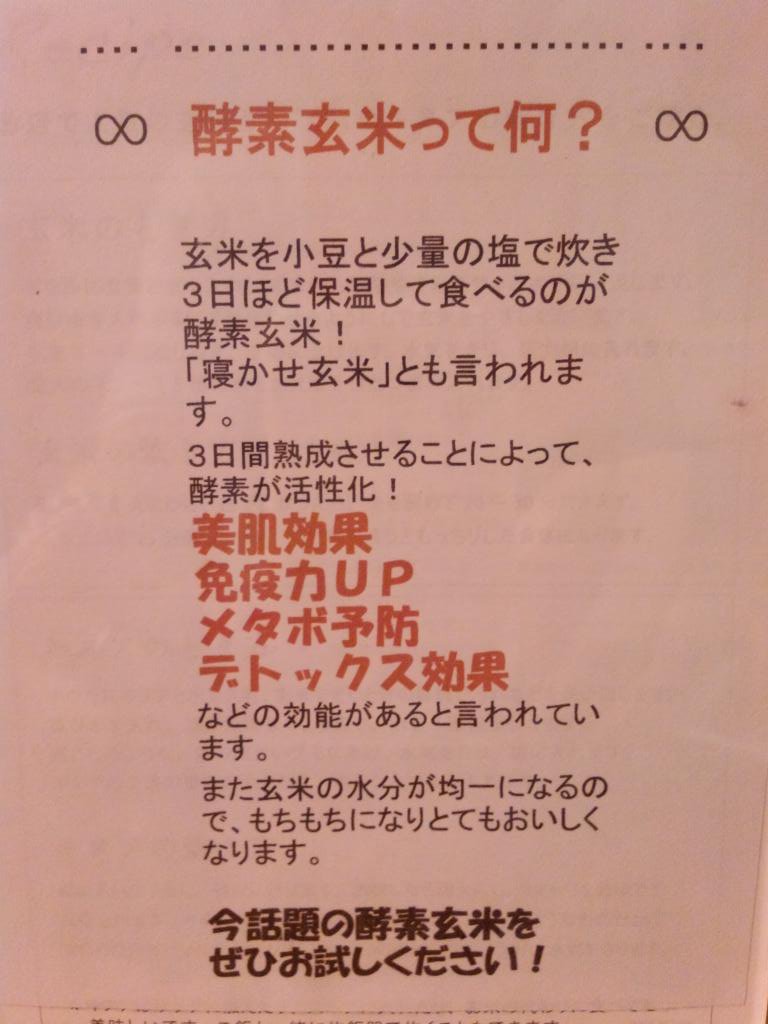 ∞ 酵素玄米って何？ ∞
玄米を小豆と少量の塩で炊き
３日ほど保温して食べるのが
酵素玄米！
「寝かせ玄米」とも言われま
す。
３日間熟成させることによって、
酵素が活性化！
美肌効果
免疫力ＵＰ
メタボ予防
デトックス効果
などの効能があると言われてい
ます。
また玄米の水分が均一になるの
で、もちもちになりとてもおいしく
なります。
今話題の酵素玄米を
ぜひお試しください！